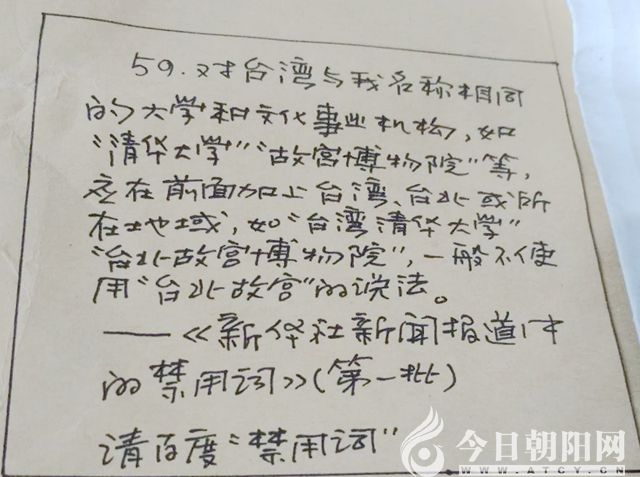 59.对台湾与我名称相同
的大学和文化事业机构,如
“清华大学”“故宫博物院”等,
应在前面加上台湾、台北或所
在地域,如“台湾清华大学”
“台北故宫博物院”,一般不使
用“台北故宫”的说法。
——《新华社新闻报道中
的禁用词》(第一批)
请百度“禁用词”
今日朝阳网
WWW.ATCY.CN